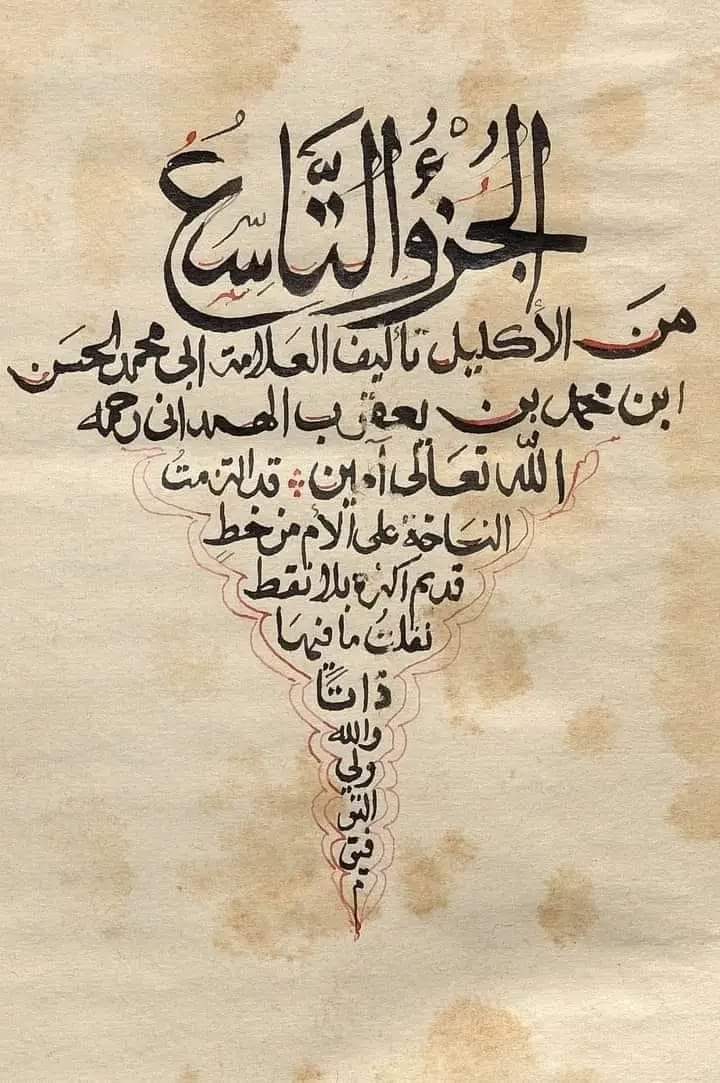 الجُزْؤُ التَّاسِعُ
منَ الأكليل تأليف العَلامة ابى محمد الحسَن
ابن محمد بن يعقوب الهمدانى رحمه
اللّه تعَالى آمين قد التزمتُ
النسَاخة على الأم من خطٍ
قديم اكثره بلا نقط
نقلتُ ما فيهَا
ذاتًا
والله
ولي
التو
فيق
م